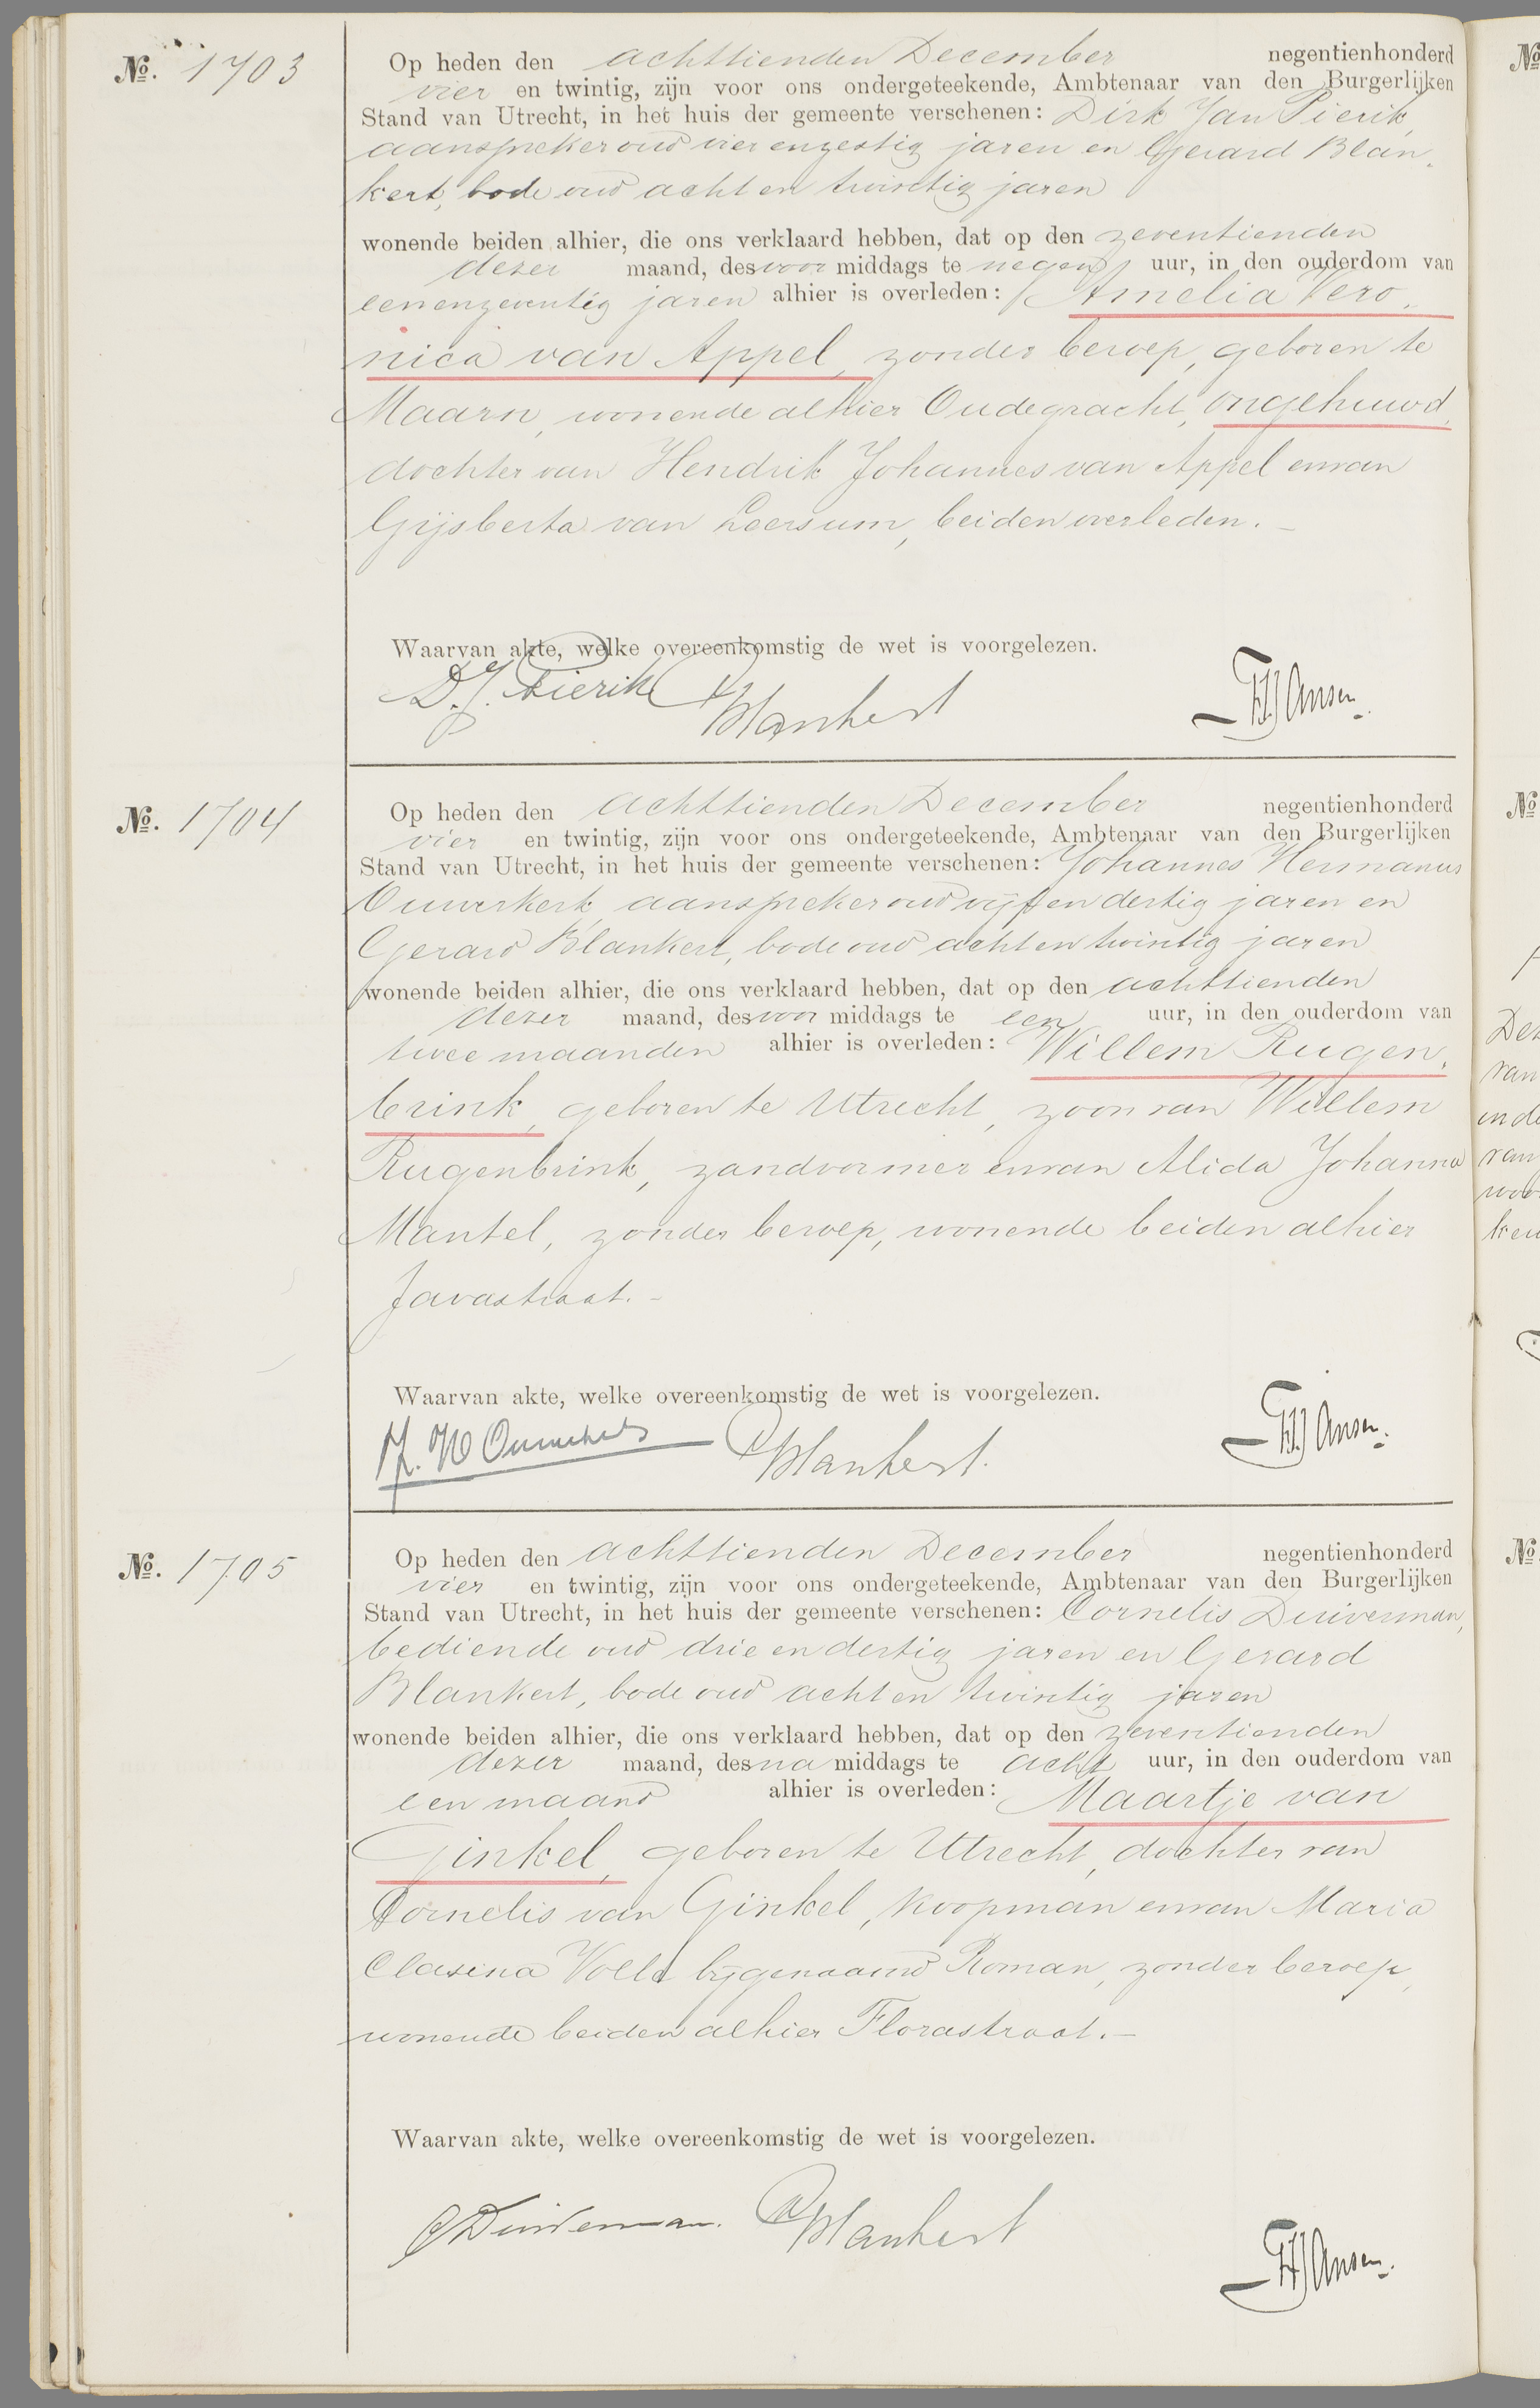 No. 1703
Op heden den achttienden December negentienhonderd
vier en twintig, zijn voor ons ondergeteekende, Ambtenaar van den Burgerlijken
Stand van Utrecht, in het huis der gemeente verschenen: Dirk Jan Pierik,
aanspreker oud vier en zestig jaren en Gerard Blan-
kert, bode oud acht en twintig jaren
wonende beiden alhier, die ons verklaard hebben, dat op den zeventienden
dezer maand, des voor middags te negen uur, in den ouderdom van
een en zeventig jaren alhier is overleden: Amelia Vero-
nica van Appel, zonder beroep, geboren te
Maarn, wonende alhier Oudegracht, ongehuwd,
dochter van Hendrik Johannes van Appel en van
Gijsberta van Leersum, beiden overleden. —
Waarvan akte, welke overeenkomstig de wet is voorgelezen.
D. J. Pierik GBlankert Jansen
No. 1704
Op heden den achttienden December negentienhonderd
vier en twintig, zijn voor ons ondergeteekende, Ambtenaar van den Burgerlijken
Stand van Utrecht, in het huis der gemeente verschenen: Johannes Hermanus
Ouwerkerk, aanspreker oud vijf en dertig jaren en
Gerard Blankert, bode oud acht en twintig jaren
wonende beiden alhier, die ons verklaard hebben, dat op den achttienden
dezer maand, des voor middags te een uur, in den ouderdom van
twee maanden alhier is overleden: Willem Rugen-
brink, geboren te Utrecht, zoon van Willem
Rugenbrink, zandvormer en van Alida Johanna
Mantel, zonder beroep, wonende beiden alhier
Javastraat. —
Waarvan akte, welke overeenkomstig de wet is voorgelezen.
J. H Ouwerkerk GBlankert. Jansen.
No. 1705
Op heden den achttienden December negentienhonderd
vier en twintig, zijn voor ons ondergeteekende, Ambtenaar van den Burgerlijken
Stand van Utrecht, in het huis der gemeente verschenen: Cornelis Duiverman,
bediende oud drie en dertig jaren en Gerard
Blankert, bode oud acht en twintig jaren
wonende beiden alhier, die ons verklaard hebben, dat op den zeventienden
dezer maand, des na middags te acht uur, in den ouderdom van
een maand alhier is overleden: Maartje van
Ginkel, geboren te Utrecht, dochter van
Cornelis van Ginkel, koopman en van Maria
Clasina Voeld bijgenaamd Roman, zonder beroep,
wonende beiden alhier Florastraat. —
Waarvan akte, welke overeenkomstig de wet is voorgelezen.
C Duiverman. GBlankert Jansen.